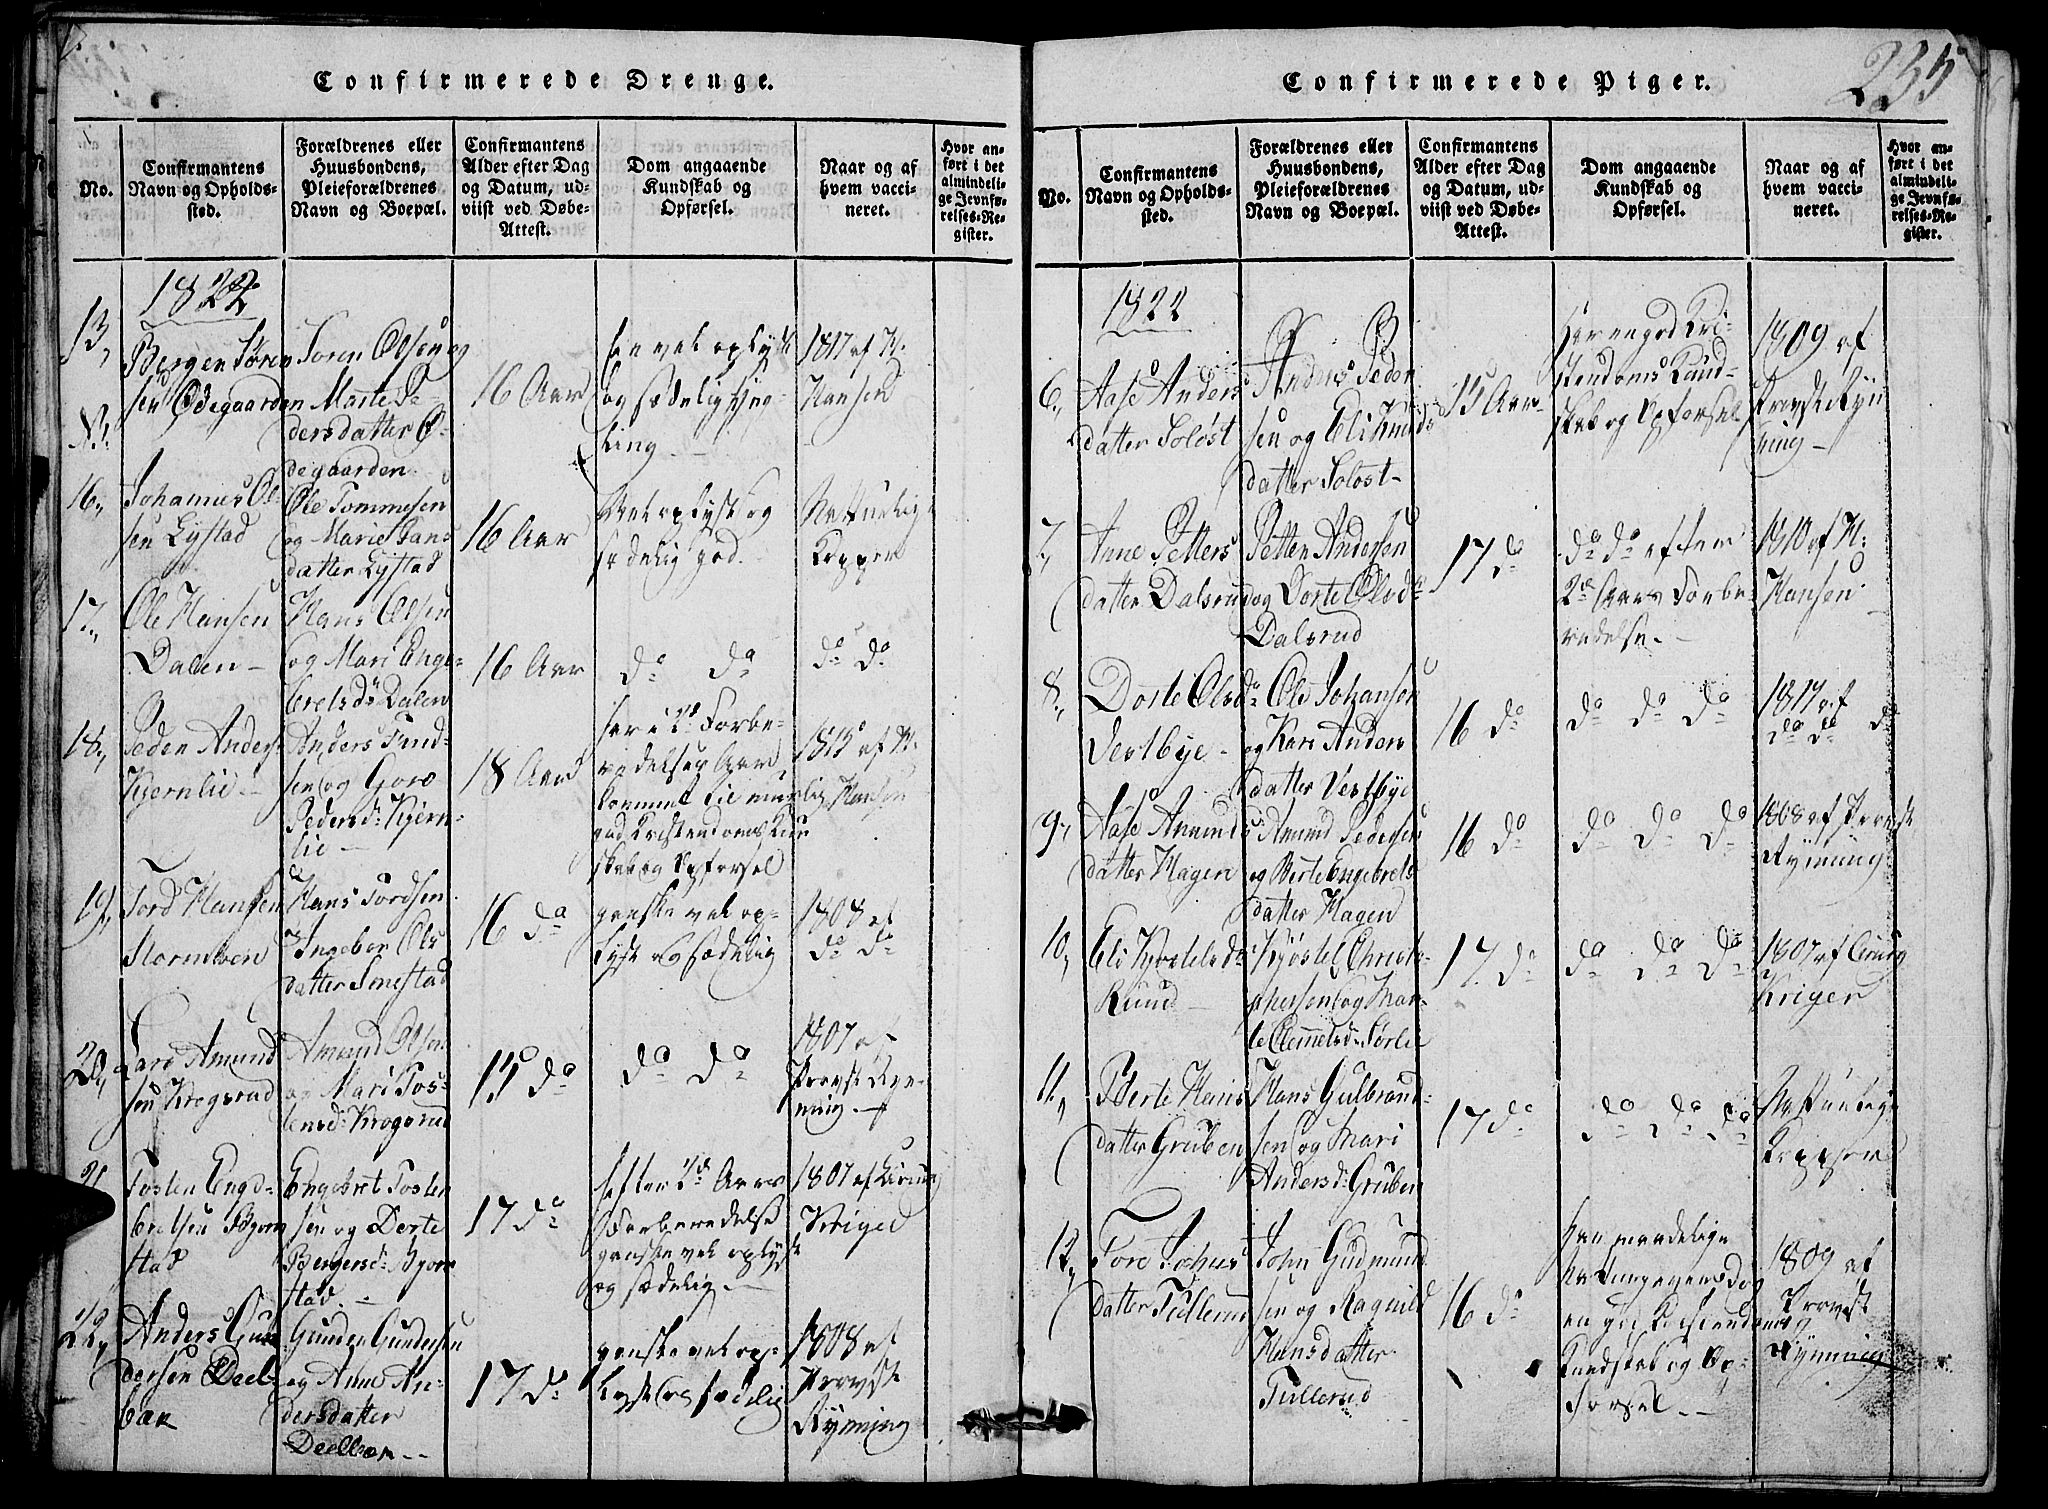 235
Confirmerede Drenge.
No.
Confirmantens
Navn og Opholds-
sted.
Forældrenes eller
Huusbondens,
Pleieforældrenes
Navn og Boepæl.
Confirmantens
Alder efter Dag
og Datum, ud-
viist ved Døbe-
Attest.
Dom angaaende
Kundskab og
Opførsel.
Naar og af
hvem vacci-
neret.
Hvor an-
ført i det
almindeli-
ge Jevnfø-
relses-Re-
gister.
1822
13,
Bergen Søren
sen Ødegaarden
Soren Olsen og
Marte Pe-
dersdatter Ø-
degaarden
16 Aar
og sædelig Yng-
ling
1817 af H.
Hansen
16,
Johannes Ol-
sen Lystad
Ole Tommesen
og Marie Hans
datter Lystad
16 Aar
Vel oplyst og
sædelig god.
Naturlige
Kopper
17,
Ole Hansen
Dalen
Hans Olsen
og Mari Enge-
bretsdr Dalen
16 Aar
do do
do do
18,
Peder Anders
Kjernlie
Anders Knud-
sen og Goro
Pedersdr Kjern-
lie
18 Aar
god Kristendoms Kun
skab og Opførsel
af H.
Hansen
19,
Tord Hansen
Stormoen
Hans Tordsen
Ingebor Ols
datter Smestad
16 do
ganske vel op-
lyst og sædelig
1808 af
do do
20,
Amund
sen Krogsrud
Amund Olsen
og Mari Tos-
tensdr Krogsrud
15 do
do do
1807 af
Provst Ryn-
ning
21
Tosten Enge-
bretsen Bjørn
stad
Engebret Tosten
sen og Dorte
Bergersdr Bjørn
stad.
17 do
efter 2de Aars
Forberedelse
ganske vel oplyst
og sædelig.
1807 af Chirurg
Kriger
22,
Anders Gun
dersen Deel-
bæk
Gunder Gundersen
og Anne An-
dersdatter
Deelbæk
17 do
ganske vel op-
lyst og sædelig
1808 af
Provst
Rynning
Confirmerede Piger.
No.
Confirmantens
Navn og Opholds-
sted.
Forældrenes eller
Huusbondens,
Pleieforældrenes
Navn og Boepæl.
Confirmantens
Alder efter Dag
og Datum, ud-
viist ved Døbe-
Attest.
Dom angaaende
Kundskab og
Opførsel.
Naar og af
hvem vacci-
neret.
Hvor an-
ført i det
almindeli-
ge Jevnfø-
relses-Re-
gister.
1822
6,
Aase Anders
datter Soløst
Anders Peder
sen og Eli Knuds
datter Soløst
15 Aar
Har en god Kri-
stendoms Kund-
skab og Opførsel
1809 af
Provst Ryn
ning
7,
Anne Petters
datter Dalsrud
Petter Andersen
og Dorte Olsdr
Dalsrud
17 do
do do efter
2de Aars Forbe-
redelse.
1810 af H.
Hansen
8,
Dorte Olsdr
Vestbye
Ole Johansen
og Kari Anders
datter Vestbye
16 do
do do do
1817 af
do do
9,
Aase Amunds
datter Hagen
Amund Pedersen
og Berte Engebrets
datter Hagen
16 do
do do do
1808 af Provst
Rynning
10,
Eli Kjøstelsdr
Ruud
Kjøstel Christo-
phersen og Mar-
te Clemmetsdr Sørlie
17 do
do do do
1807 af Chirurg
Kriger
11,
Berte Hans
datter Gruben
Hans Gulbrand-
sen og Mari
Andersdr Gruben
17 do
do do do
Naturlige
Kopper
12,
Tore Johns
datter Tullerud
John Gudmund
sen og Ragnild
Hansdatter
Tullerud
16 do
en god Kristendoms
Kundskab og Op-
førsel.
1809 af
Provst
Rynning